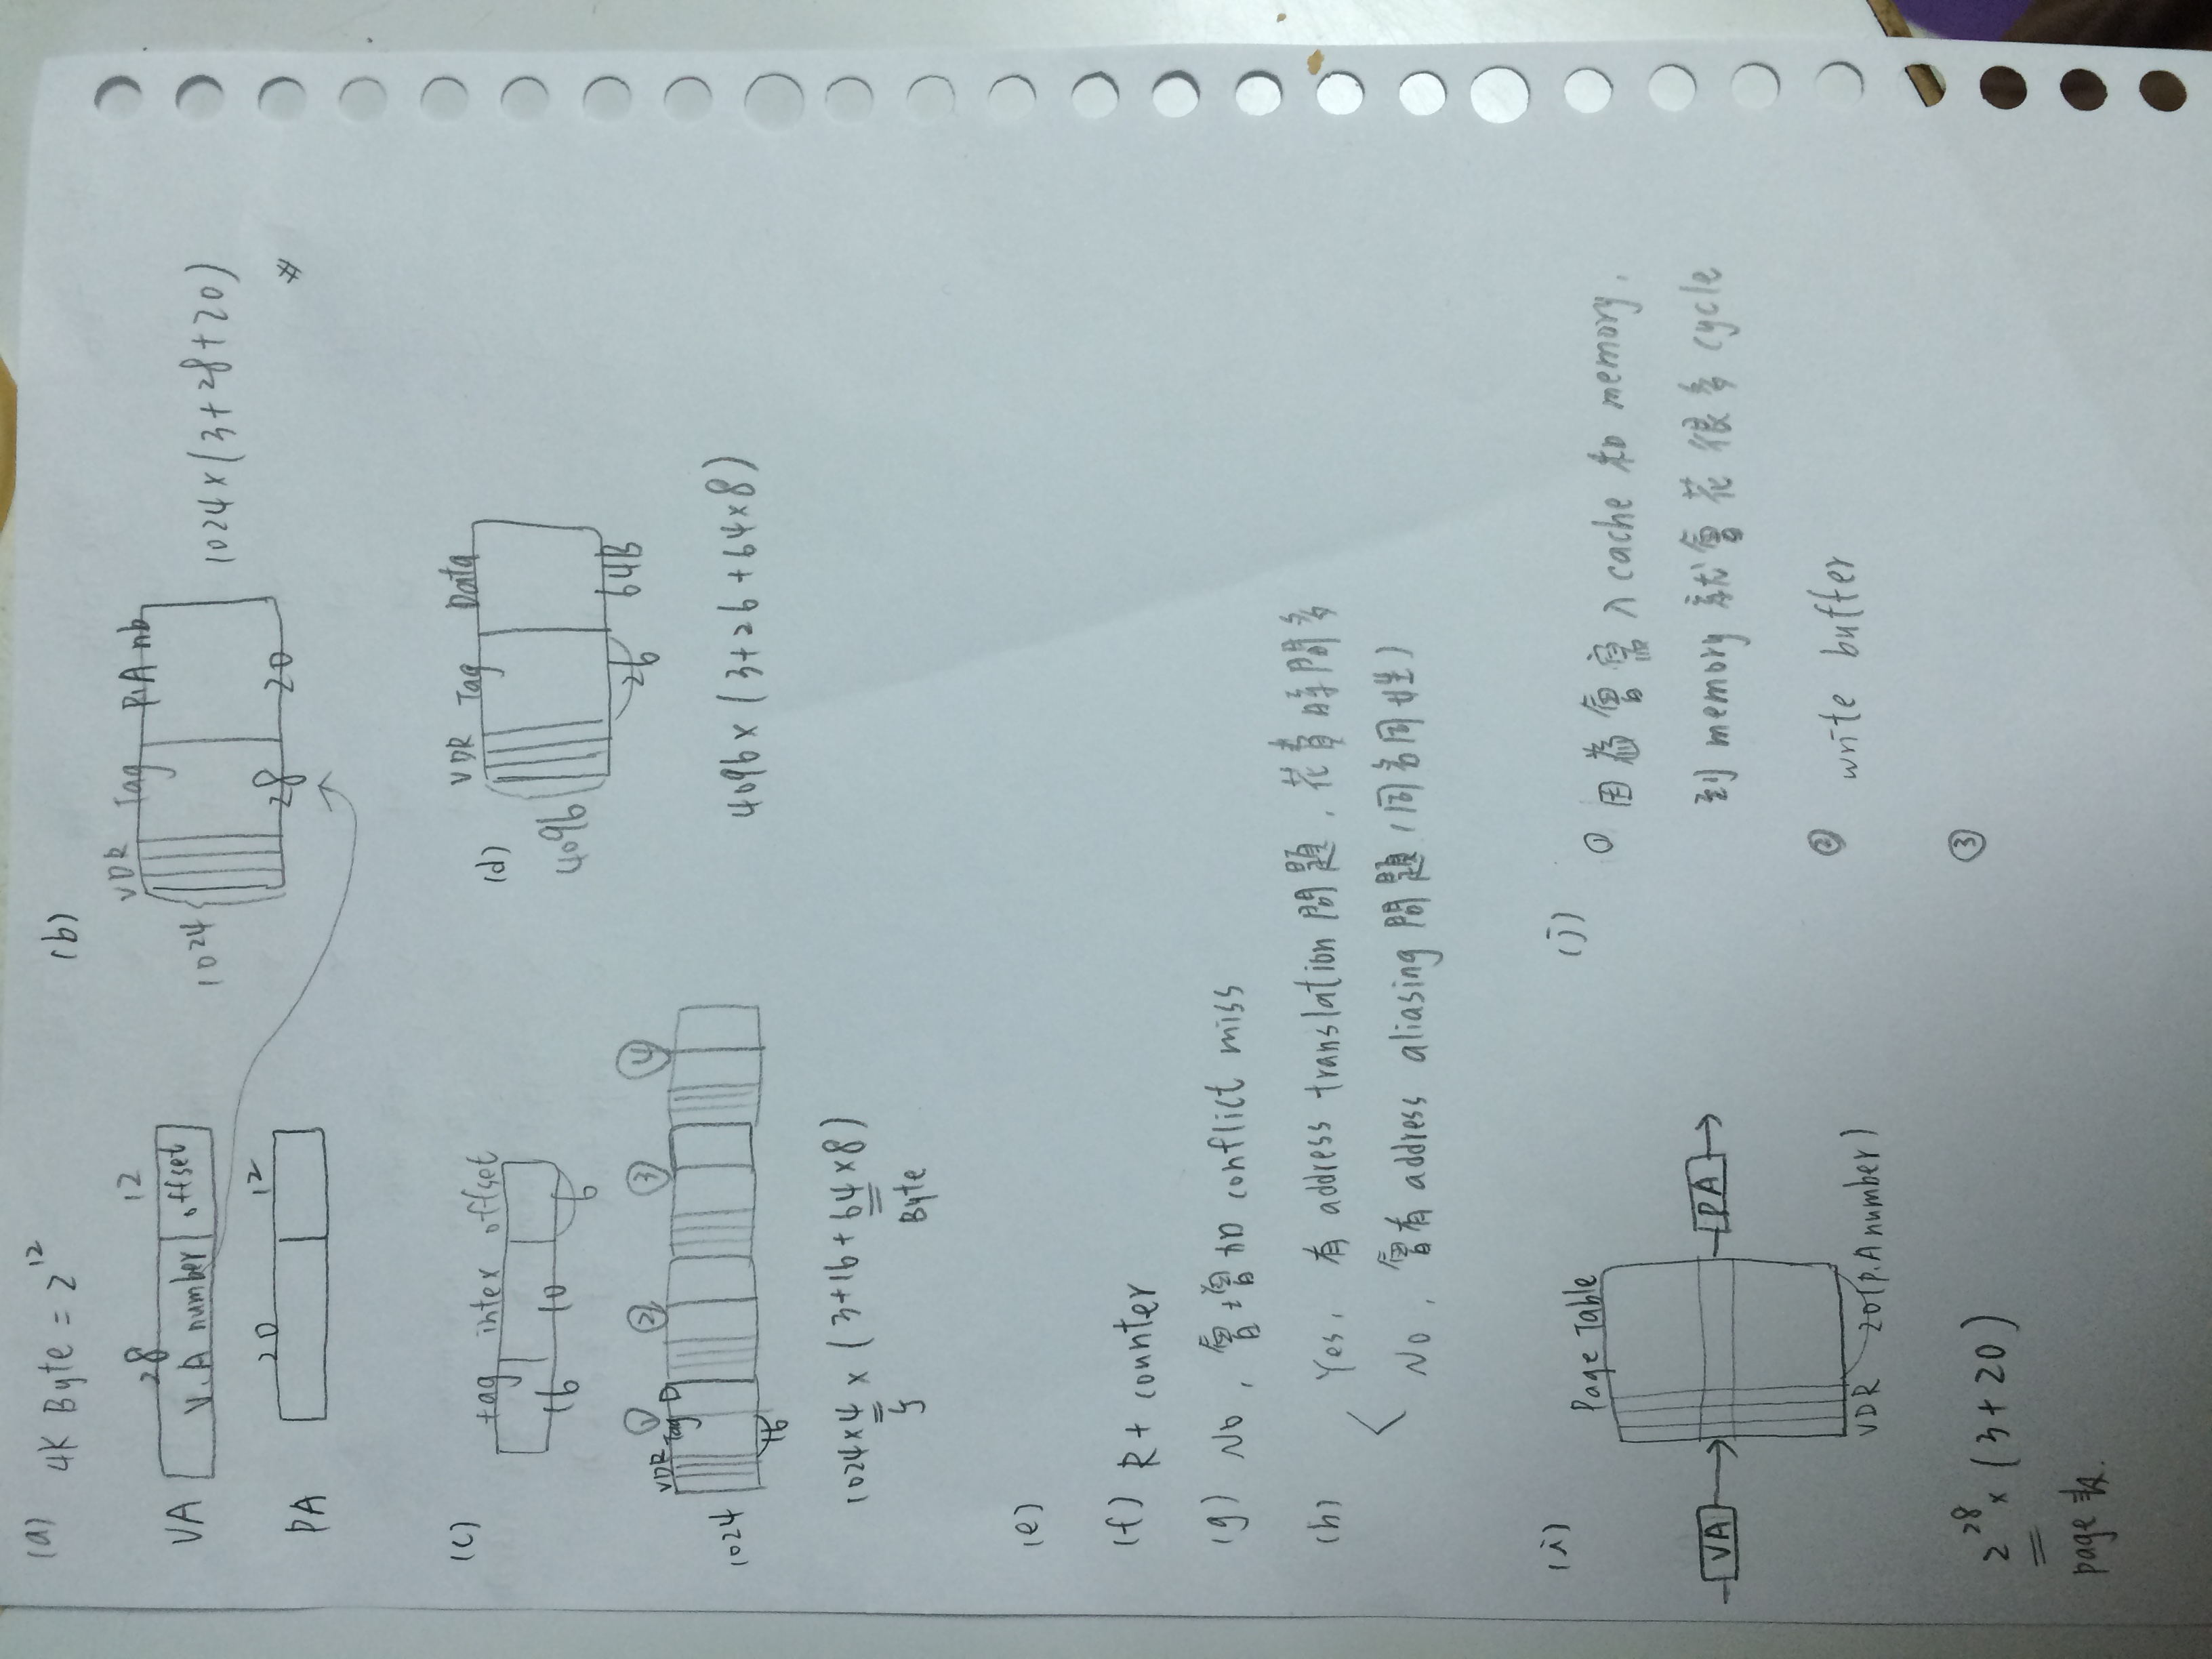 (a) 4K Byte = 2^12
28 12
VA V.A number offset
20 12
PA
(b)
VDR Tag P.A nb
1024
28 20
1024 × (3+28+20)
#
(c)
tag intex offset
16 10 6
① ② ③ ④
VDR Tag D
1024
16
1024 × 4 × (3+16+64×8)
Byte
(d)
VDR Tag Data
4096
26 64B
4096 × (3+26+64×8)
(e)
(f) R + counter
(g) No, 會增加 conflict miss
(h) Yes, 有 address translation 問題, 花費時間多
No, 會有 address aliasing 問題 (同名同姓)
(i)
Page Table
VA PA
VDR 20(P.A number)
2^28 × (3+20)
page 數.
(j)
① 因為會寫入 cache 和 memory,
到 memory 就會花很多 cycle
② write buffer
③